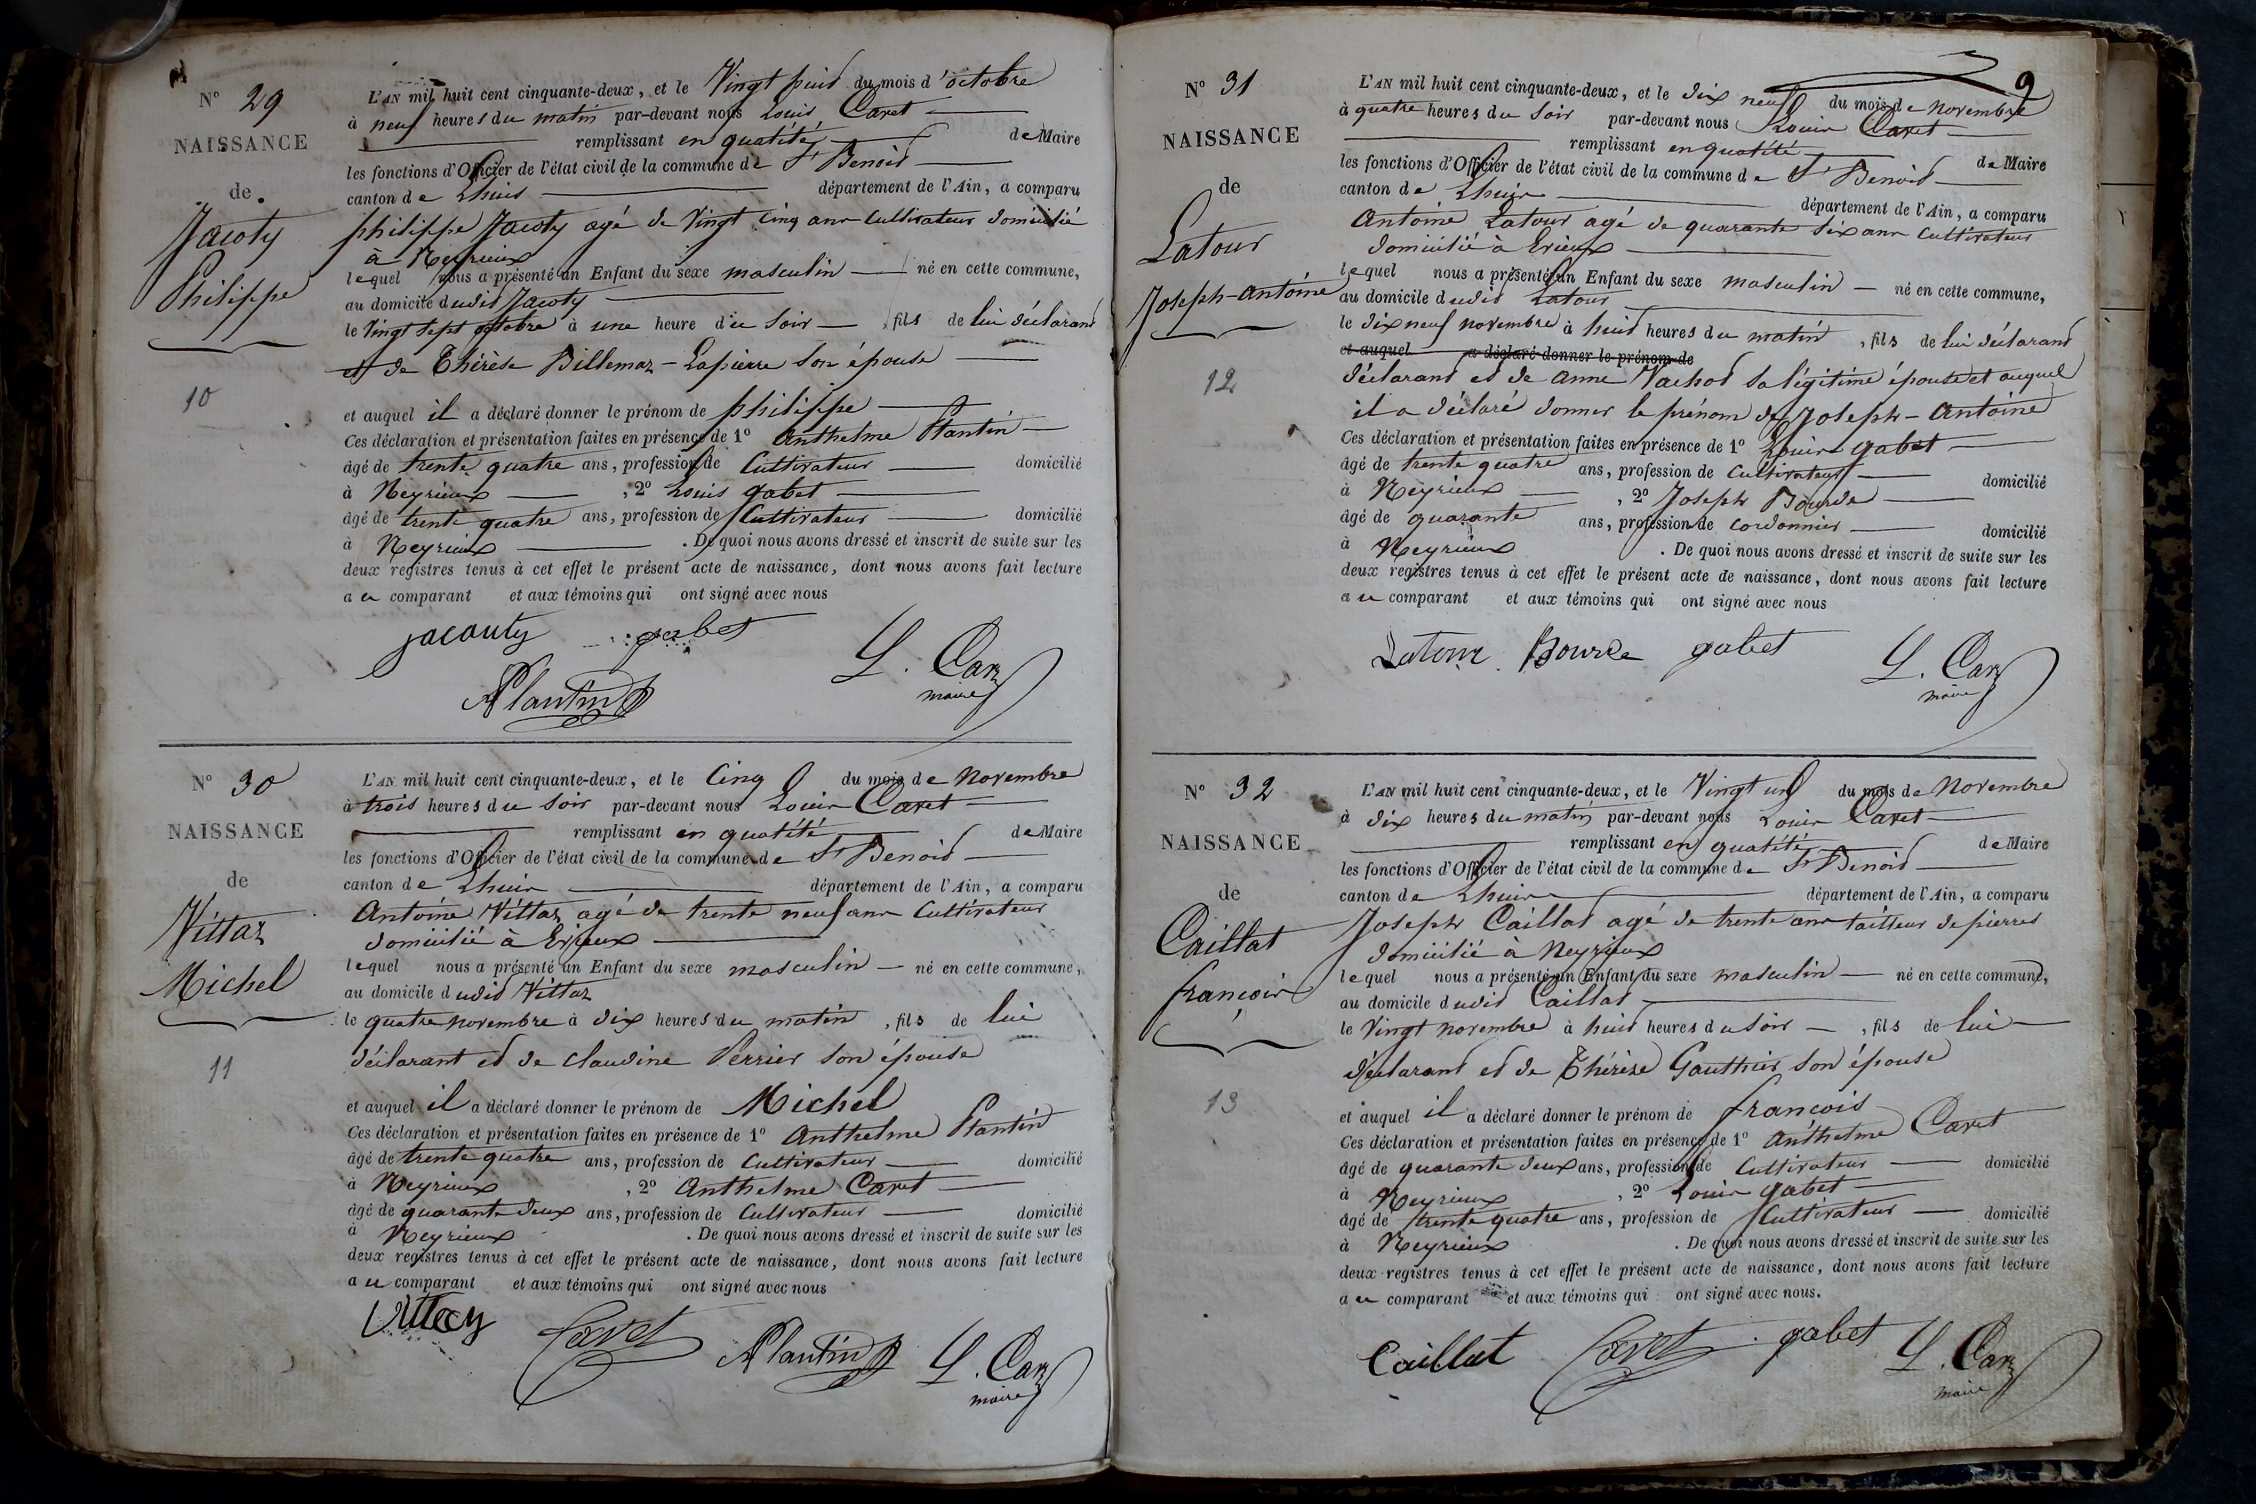 N° 29
NAISSANCE
de
Jacoty
Philippe
10
L'AN mil huit cent cinquante-deux, et le Vingt huit du mois d'octobre
à neuf heures du matin par-devant nous Louis Caret
remplissant en qualité de Maire
les fonctions d'Officier de l'état civil de la commune de St Benoit
canton de Lhuis département de l'Ain, a comparu
philippe Jacoty agé de Vingt cinq ans Cultivateur domicilié
à Neyrieux
lequel nous a présenté un Enfant du sexe masculin né en cette commune,
au domicile dudit Jacoty
le Vingt sept octobre à une heure du soir, fils de lui déclarant
et de Thérèse Billemaz-Lapierre son épouse
et auquel il a déclaré donner le prénom de philippe
Ces déclaration et présentation faites en présence de 1° Anthelme Plantin
âgé de trente quatre ans, profession de Cultivateur domicilié
à Neyrieux, 2° Louis gabet
âgé de trente quatre ans, profession de Cultivateur domicilié
à Neyrieux. De quoi nous avons dressé et inscrit de suite sur les
deux registres tenus à cet effet le présent acte de naissance, dont nous avons fait lecture
au comparant et aux témoins qui ont signé avec nous
jacouty gabet
L. Caret
APlantin maire
N° 30
NAISSANCE
de
Vittaz
Michel
11
L'AN mil huit cent cinquante-deux, et le Cinq du mois de Novembre
à trois heures du soir par-devant nous Louis Caret
remplissant en qualité de Maire
les fonctions d'Officier de l'état civil de la commune de St Benoit
canton de Lhuis département de l'Ain, a comparu
Antoine Vittaz agé de trente neuf ans Cultivateur
domicilié à Erieux
lequel nous a présenté un Enfant du sexe masculin né en cette commune,
au domicile dudit Vittaz
le quatre novembre à dix heures du matin, fils de lui
déclarant et de Claudine Perrier son épouse
et auquel il a déclaré donner le prénom de Michel
Ces déclaration et présentation faites en présence de 1° Anthelme Plantin
âgé de trente quatre ans, profession de Cultivateur domicilié
à Neyrieux, 2° Anthelme Caret
âgé de quarante deux ans, profession de Cultivateur domicilié
à Neyrieux. De quoi nous avons dressé et inscrit de suite sur les
deux registres tenus à cet effet le présent acte de naissance, dont nous avons fait lecture
au comparant et aux témoins qui ont signé avec nous
Caret APlantin L. Caret
maire
9
N° 31
NAISSANCE
de
Latour
Joseph-Antoine
12
L'AN mil huit cent cinquante-deux, et le dix neuf du mois de novembre
à quatre heures du soir par-devant nous Louis Caret
remplissant en qualité de Maire
les fonctions d'Officier de l'état civil de la commune de St Benoit
canton de Lhuis département de l'Ain, a comparu
Antoine Latour agé de quarante six ans Cultivateur
domicilié à Erieux
lequel nous a présenté un Enfant du sexe masculin né en cette commune,
au domicile dudit Latour
le dix neuf novembre à huit heures du matin, fils de lui déclarant
et auquel a déclaré donner le prénom de
déclarant et de Anne Vachot sa légitime épouse et auquel
il a déclaré donner le prénom de Joseph-Antoine
Ces déclaration et présentation faites en présence de 1° Louis gabet
âgé de trente quatre ans, profession de Cultivateur domicilié
à Neyrieux, 2° Joseph Bourde
âgé de quarante ans, profession de cordonnier domicilié
à Neyrieux. De quoi nous avons dressé et inscrit de suite sur les
deux registres tenus à cet effet le présent acte de naissance, dont nous avons fait lecture
au comparant et aux témoins qui ont signé avec nous
Latour Bourde gabet L. Caret
maire
N° 32
NAISSANCE
de
Caillat
françois
13
L'AN mil huit cent cinquante-deux, et le Vingt un du mois de Novembre
à dix heures du matin par-devant nous Louis Caret
remplissant en qualité de Maire
les fonctions d'Officier de l'état civil de la commune de St Benoit
canton de Lhuis département de l'Ain, a comparu
Joseph Caillat agé de trente ans tailleur de pierres
domicilié à Neyrieux
lequel nous a présenté un Enfant du sexe masculin né en cette commune,
au domicile dudit Caillat
le Vingt novembre à huit heures du soir, fils de lui
déclarant et de Thérèse Gauthier son épouse
et auquel il a déclaré donner le prénom de françois
Ces déclaration et présentation faites en présence de 1° Anthelme Caret
âgé de quarante deux ans, profession de Cultivateur domicilié
à Neyrieux, 2° Louis gabet
âgé de trente quatre ans, profession de Cultivateur domicilié
à Neyrieux. De quoi nous avons dressé et inscrit de suite sur les
deux registres tenus à cet effet le présent acte de naissance, dont nous avons fait lecture
au comparant et aux témoins qui ont signé avec nous.
Caillat Caret gabet L. Caret
maire